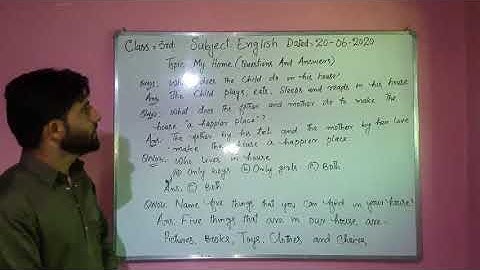 Class = 3rd Subject English Dated = 20-06-2020
Topic My Home (Questions And Answers)
What does the child do in his house?
Ans. The child plays, eats, sleeps and reads in his house
What does the father and mother do to make the
house "a happier place"?
Ans. The father by his and the mother by her love
make the house a happier place
Who lives in house
(a) Only boys (b) Only girls (c) Both
Ans. (c) Both
Name five things that you can find in your house?
Ans. Five things that are in our house are
Pictures, Books, Toys, Clothes and Chairs,